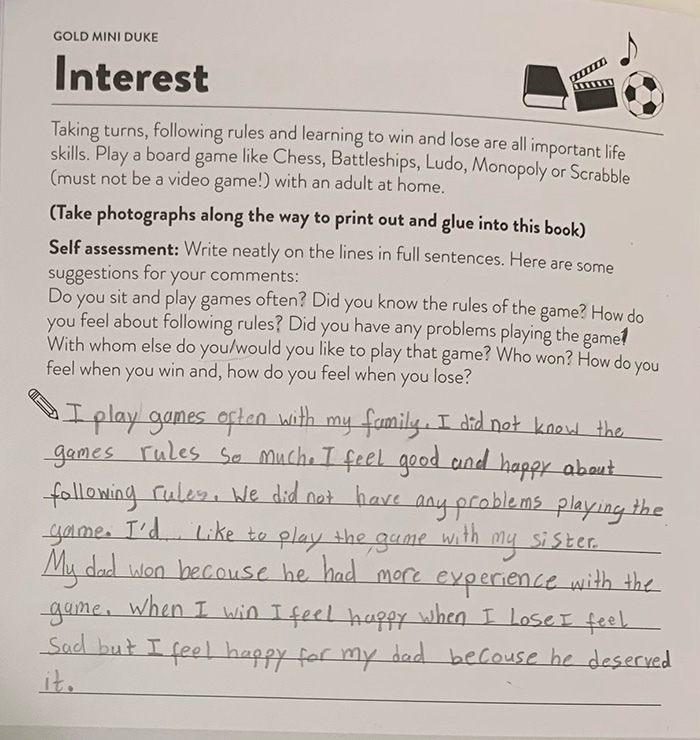 GOLD MINI DUKE
Interest
Taking turns, following rules and learning to win and lose are all important life
skills. Play a board game like Chess, Battleships, Ludo, Monopoly or Scrabble
(must not be a video game!) with an adult at home.
(Take photographs along the way to print out and glue into this book)
Self assessment: Write neatly on the lines in full sentences. Here are some
suggestions for your comments:
Do you sit and play games often? Did you know the rules of the game? How do
you feel about following rules? Did you have any problems playing the game?
With whom else do you/would you like to play that game? Who won? How do you
feel when you win and, how do you feel when you lose?
I play games often with my family. I did not know the
games rules so much. I feel good and happy about
following rules. We did not have any problems playing the
game. I'd.. Like to play the game with my sister.
My dad won becouse he had more experience with the
game. When I win I feel happy when I Lose I feel
Sad but I feel happy for my dad becouse he deserved
it.